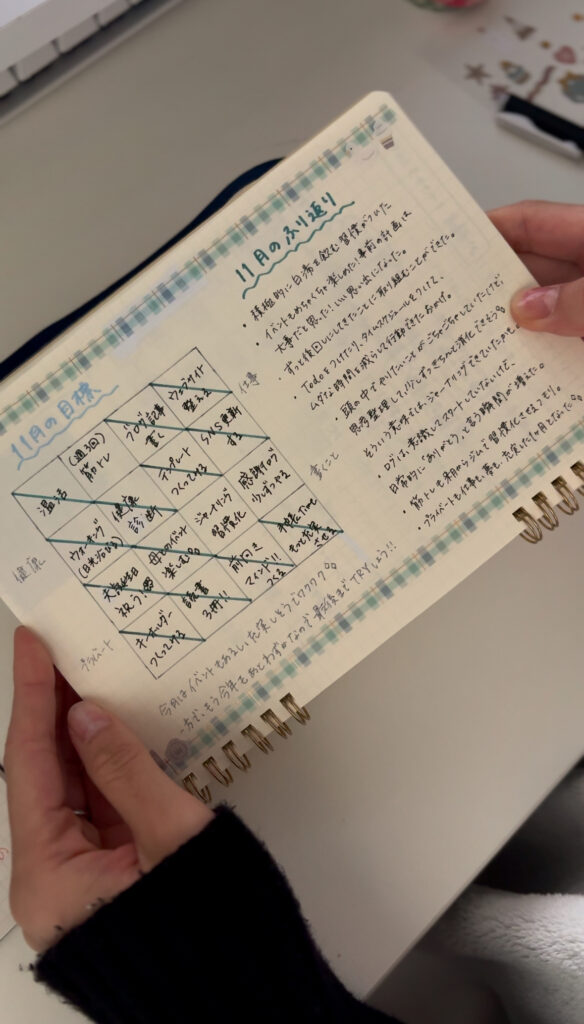 11月の目標
仕事
健康
書くこと
プライベート
温活
(週3回)
筋トレ
ブログ記事
書く
ウェブサイト
整える
ウォーキング
健康
診断
テンプレート
つくってみる
SNS更新
する
天気
祝う
母とのイベント
楽しむ
ジャーナリング
習慣化
感謝ログ
キーホルダー
つくってみる
読書
3冊!!
前向き
マインド!!
つくる
させる
今月はイベントもあるし、充実しそうでワクワク
一方で、もう今年もあとわずかなので最後までTRYしよう!!
11月のふり返り
・積極的に白湯を飲む習慣がついた
・イベントもめちゃくちゃ楽しめた!事前の計画は
大事だと思った!いい思い出になった。
・ずっと後回しにしてきたことに取り組むことができた。
・Todoをつけたり、タイムスケジュールをつけて、
ムダな時間を減らして行動できたおかげ。
・頭の中でやりたいことがごちゃごちゃしていたけど、
思考整理して1つずつきちんと消化できそう
そういう意味では、ジャーナリングできていたかも
・ログは、意識してスタートしていないけど、
日常的に「ありがとう」と言う瞬間が増えた。
・筋トレも来月からジムで習慣化させるぞ!
・プライベートも仕事も、凄く充実した1ヶ月となった